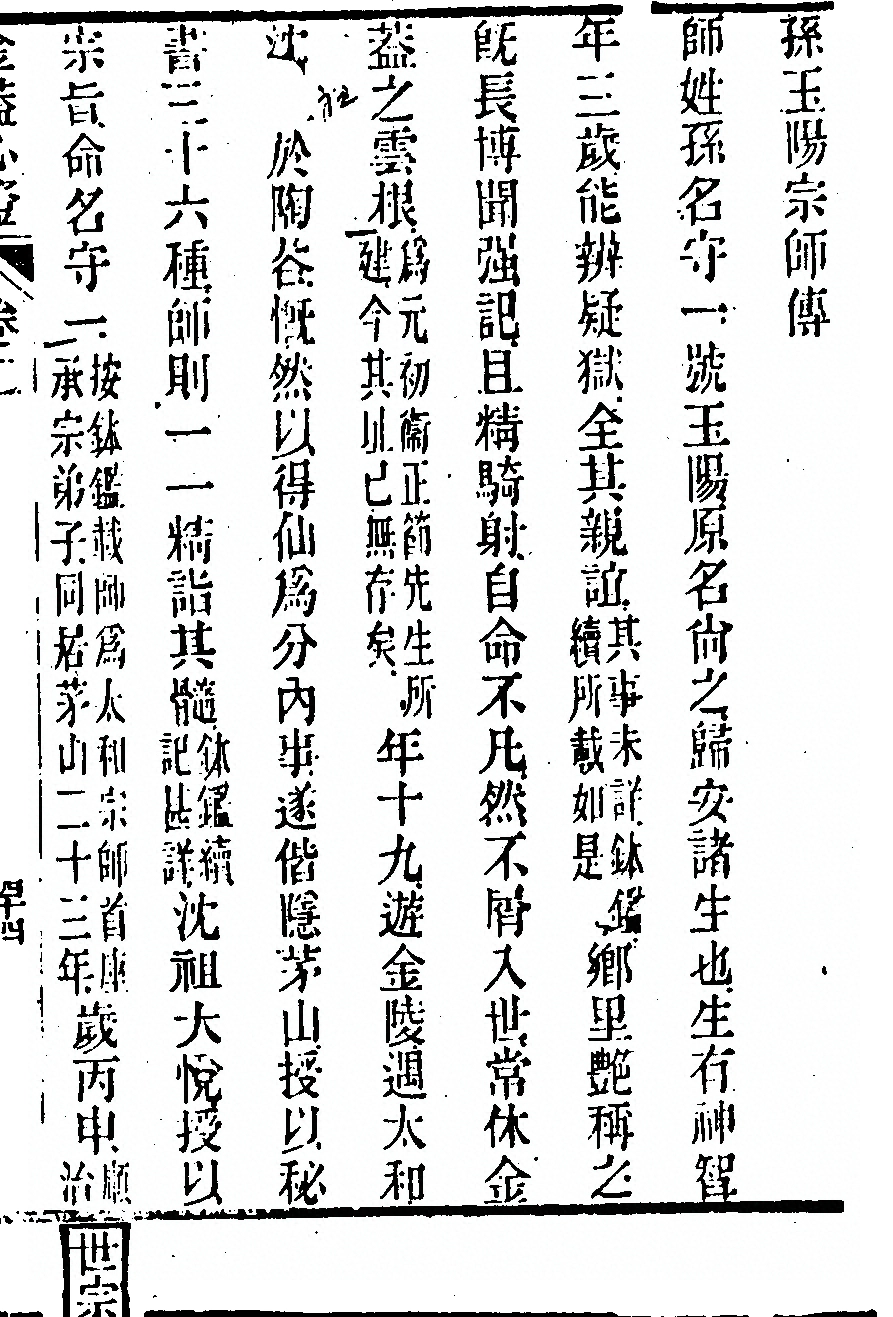 孫玉陽宗師傳
師姓孫名守一號玉陽原名尙之歸安諸生也生有神智
年三歲能辨疑獄全其親誼其事未詳鉢鑑續所載如是鄉里艷稱之
旣長博聞强記且精騎射自命不凡然不屑入世常休金
葢之雲根爲元初衞正節先生所建今其址已無存矣年十九遊金陵遇太和
沈 於陶谷慨然以得仙爲分內事遂偕隱茅山授以秘
書三十六種師則一一精詣其髓鉢鑑續記甚詳沈祖大悅授以
宗旨命名守一按鉢鑑載師爲太和宗師首座承宗弟子同居茅山二十三年歲丙申順治
金葢心燈 卷二
世宗